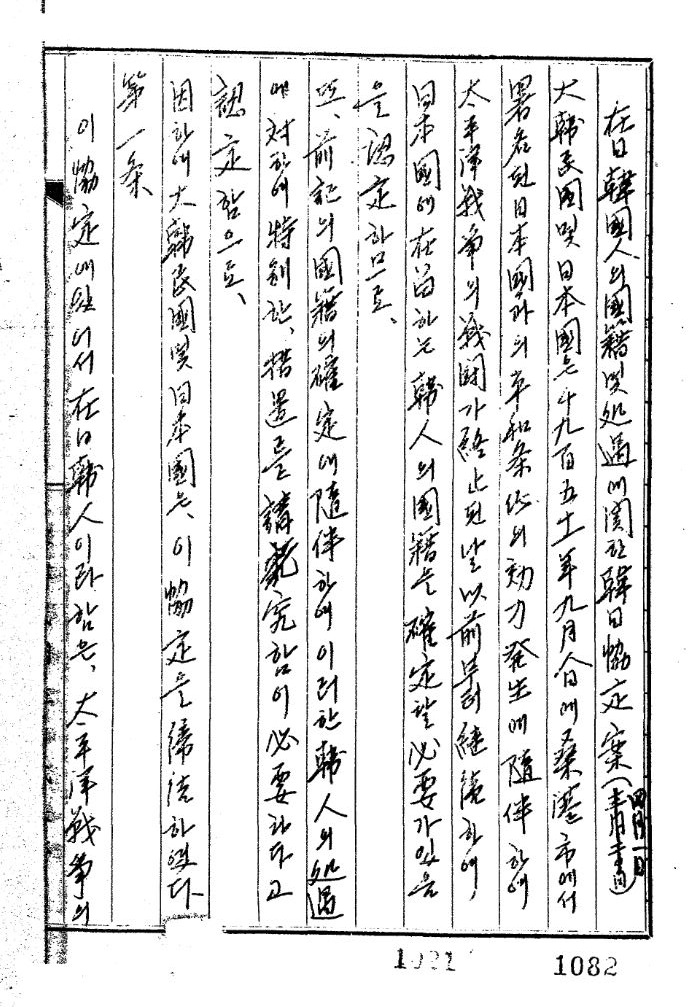 在日韓國人의國籍및処遇에関한韓日協定案(四月一日
大韓民國및日本國은千九百五十一年九月八日에桑港市에서
署名된日本國과의平和条約의効力発生에随伴하여
太平洋戦争의戦闘가終止된날以前부터継續하여,
日本國에在留하는韓人의國籍을確定할必要가있음
을認定하므로,
또,前記의國籍의確定에随伴하여이러한韓人의処遇
에対하여特別한,措置를講究함이必要하다고
認定함으로,
因하여大韓民國및日本國은,이協定을締結하였다
第一条
이協定에있어서在日韓人이라함은,太平洋戦争의
1082